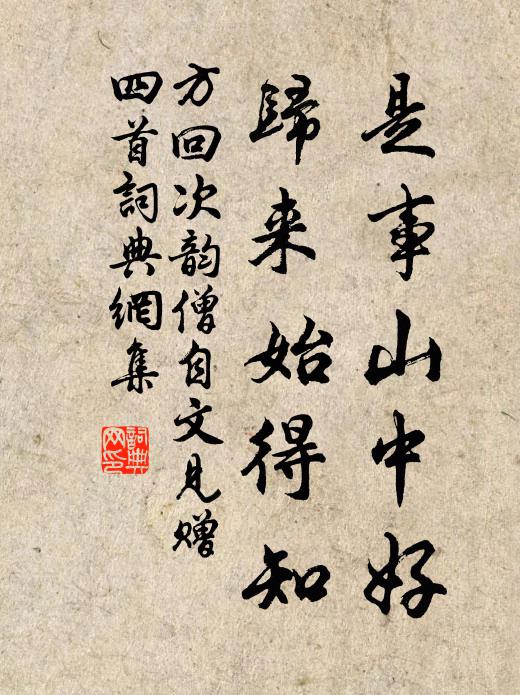 是事山中好
歸来始得知
方回次韵僧自文见赠
四首詞典網集
詞典
网印